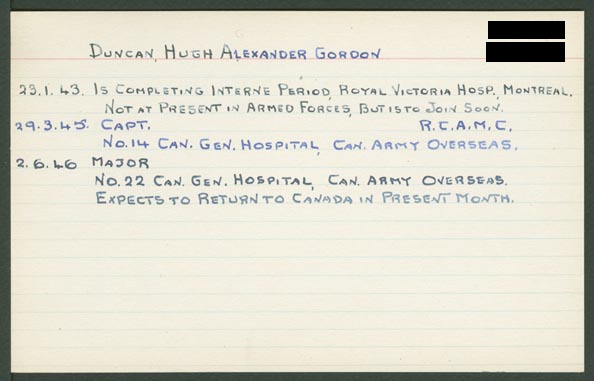 DUNCAN, HUGH ALEXANDER GORDON
23.1.43. IS COMPLETING INTERNE PERIOD, ROYAL VICTORIA HOSP., MONTREAL.
NOT AT PRESENT IN ARMED FORCES, BUT IS TO JOIN SOON.
29.3.45. CAPT. R.C.A.M.C.
NO.14 CAN. GEN. HOSPITAL, CAN. ARMY OVERSEAS.
2.6.46 MAJOR
NO.22 CAN. GEN. HOSPITAL, CAN. ARMY OVERSEAS.
EXPECTS TO RETURN TO CANADA IN PRESENT MONTH.